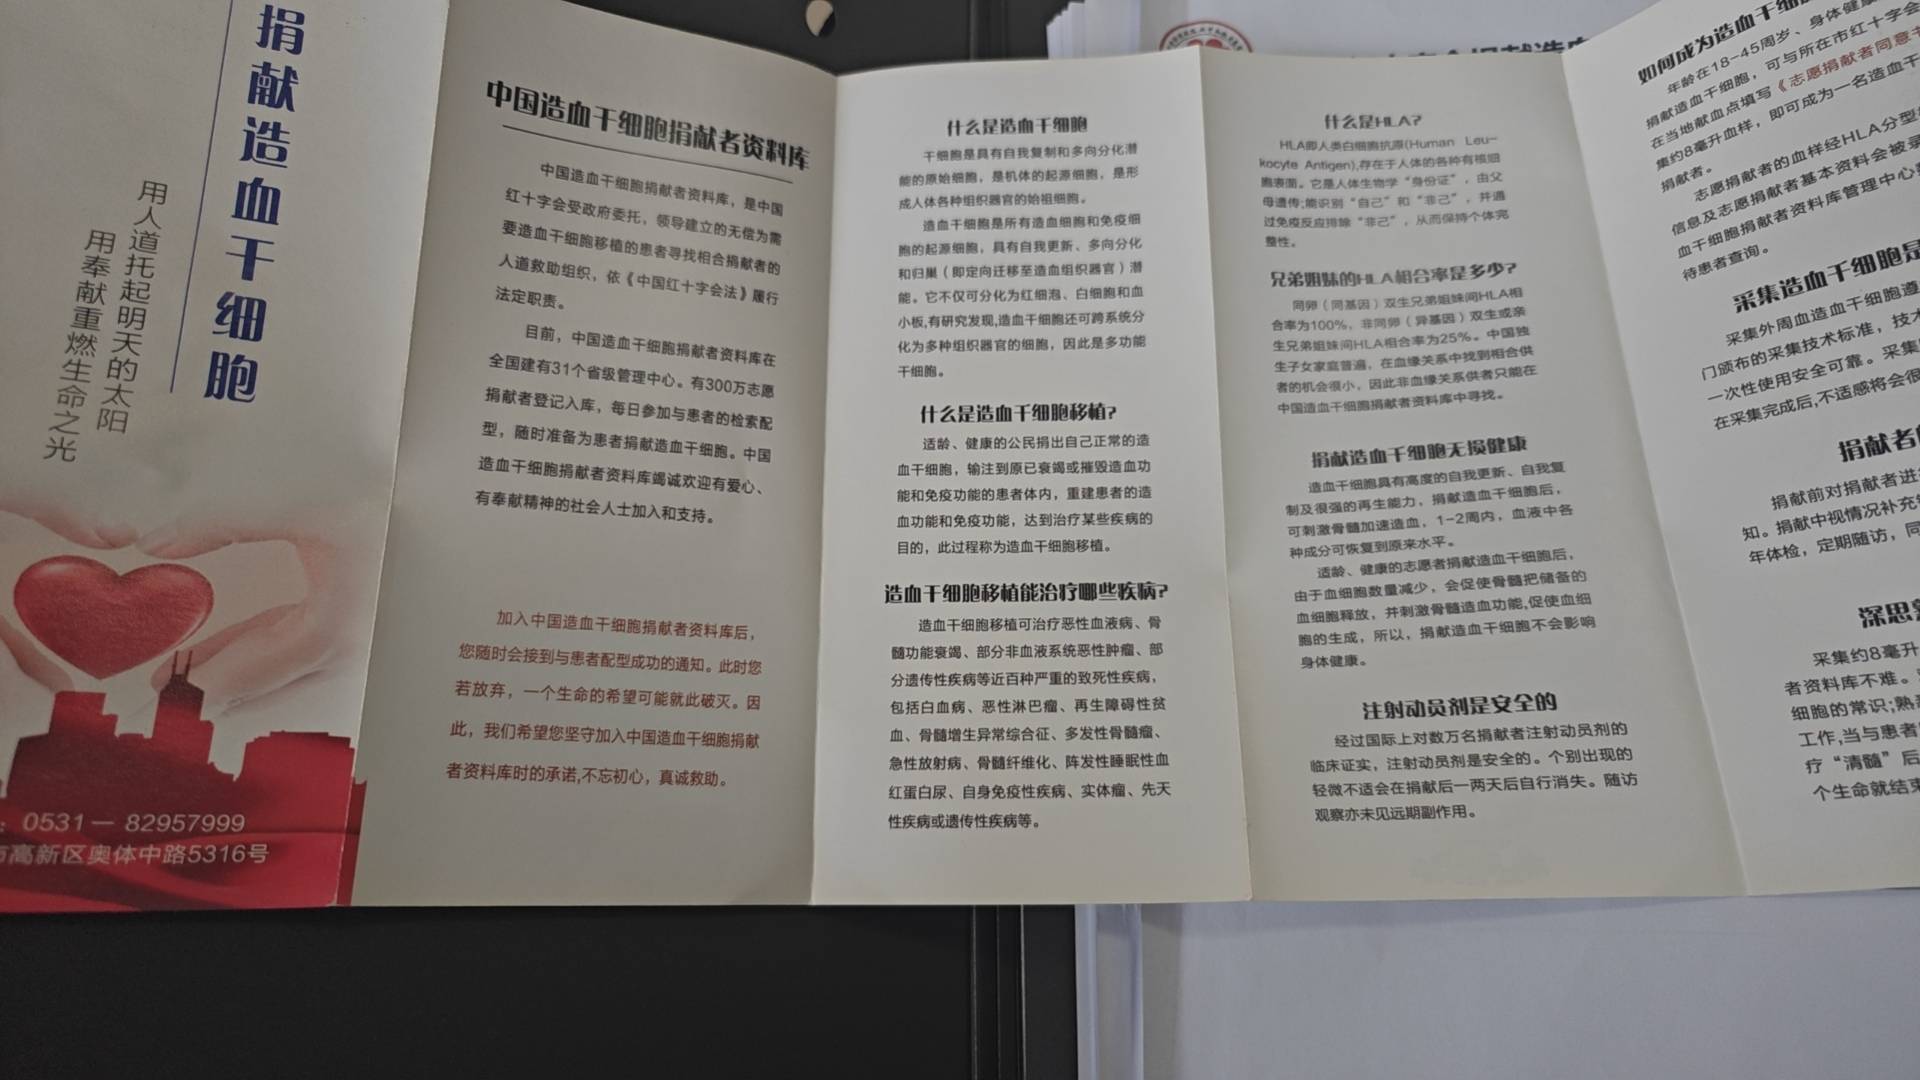 捐献造血干细胞
用人道托起明天的太阳
用奉献重燃生命之光
：0531－82957999
市高新区奥体中路5316号
中国造血干细胞捐献者资料库
中国造血干细胞捐献者资料库，是中国
红十字会受政府委托，领导建立的无偿为需
要造血干细胞移植的患者寻找相合捐献者的
人道救助组织，依《中国红十字会法》履行
法定职责。
目前，中国造血干细胞捐献者资料库在
全国建有31个省级管理中心。有300万志愿
捐献者登记入库，每日参加与患者的检索配
型，随时准备为患者捐献造血干细胞。中国
造血干细胞捐献者资料库竭诚欢迎有爱心、
有奉献精神的社会人士加入和支持。
加入中国造血干细胞捐献者资料库后，
您随时会接到与患者配型成功的通知。此时您
若放弃，一个生命的希望可能就此破灭。因
此，我们希望您坚守加入中国造血干细胞捐献
者资料库时的承诺,不忘初心，真诚救助。
什么是造血干细胞
干细胞是具有自我复制和多向分化潜
能的原始细胞，是机体的起源细胞，是形
成人体各种组织器官的始祖细胞。
造血干细胞是所有造血细胞和免疫细
胞的起源细胞，具有自我更新、多向分化
和归巢（即定向迁移至造血组织器官）潜
能。它不仅可分化为红细泡、白细胞和血
小板,有研究发现,造血干细胞还可跨系统分
化为多种组织器官的细胞，因此是多功能
干细胞。
什么是造血干细胞移植?
适龄、健康的公民捐出自己正常的造
血干细胞，输注到原已衰竭或摧毁造血功
能和免疫功能的患者体内，重建患者的造
血功能和免疫功能，达到治疗某些疾病的
目的，此过程称为造血干细胞移植。
造血干细胞移植能治疗哪些疾病?
造血干细胞移植可治疗恶性血液病、骨
髓功能衰竭、部分非血液系统恶性肿瘤、部
分遗传性疾病等近百种严重的致死性疾病，
包括白血病、恶性淋巴瘤、再生障碍性贫
血、骨髓增生异常综合征、多发性骨髓瘤、
急性放射病、骨髓纤维化、阵发性睡眠性血
红蛋白尿、自身免疫性疾病、实体瘤、先天
性疾病或遗传性疾病等。
什么是HLA?
HLA即人类白细胞抗原(Human Leu-
kocyte Antigen),存在于人体的各种有核细
胞表面。它是人体生物学“身份证”，由父
母遗传;能识别“自己”和“非己”，并通
过免疫反应排除“非己”，从而保持个体完
整性。
兄弟姐妹的HLA相合率是多少?
同卵（同基因）双生兄弟姐妹间HLA相
合率为100%，非同卵（异基因）双生或亲
生兄弟姐妹间HLA相合率为25%。中国独
生子女家庭普遍，在血缘关系中找到相合供
者的机会很小，因此非血缘关系供者只能在
中国造血干细胞捐献者资料库中寻找。
捐献造血干细胞无损健康
造血干细胞具有高度的自我更新、自我复
制及很强的再生能力，捐献造血干细胞后，
可刺激骨髓加速造血，1-2周内，血液中各
种成分可恢复到原来水平。
适龄、健康的志愿者捐献造血干细胞后，
由于血细胞数量减少，会促使骨髓把储备的
血细胞释放，并刺激骨髓造血功能,促使血细
胞的生成，所以，捐献造血干细胞不会影响
身体健康。
注射动员剂是安全的
经过国际上对数万名捐献者注射动员剂的
临床证实，注射动员剂是安全的。个别出现的
轻微不适会在捐献后一两天后自行消失。随访
观察亦未见远期副作用。
如何成为造血干细胞
年龄在18-45周岁、身体健康
捐献造血干细胞，可与所在市红十字会
在当地献血点填写《志愿捐献者同意书
集约8毫升血样，即可成为一名造血干
捐献者。
志愿捐献者的血样经HLA分型
信息及志愿捐献者基本资料会被录
血干细胞捐献者资料库管理中心
待患者查询。
采集造血干细胞是
采集外周血造血干细胞遵
门颁布的采集技术标准，技术
一次性使用安全可靠。采集
在采集完成后,不适感将会很
捐献者的
捐献前对捐献者进
知。捐献中视情况补充
年体检，定期随访，同
深思熟
采集约8毫升
者资料库不难。
细胞的常识;熟
工作,当与患者
疗“清髓”后
个生命就结束